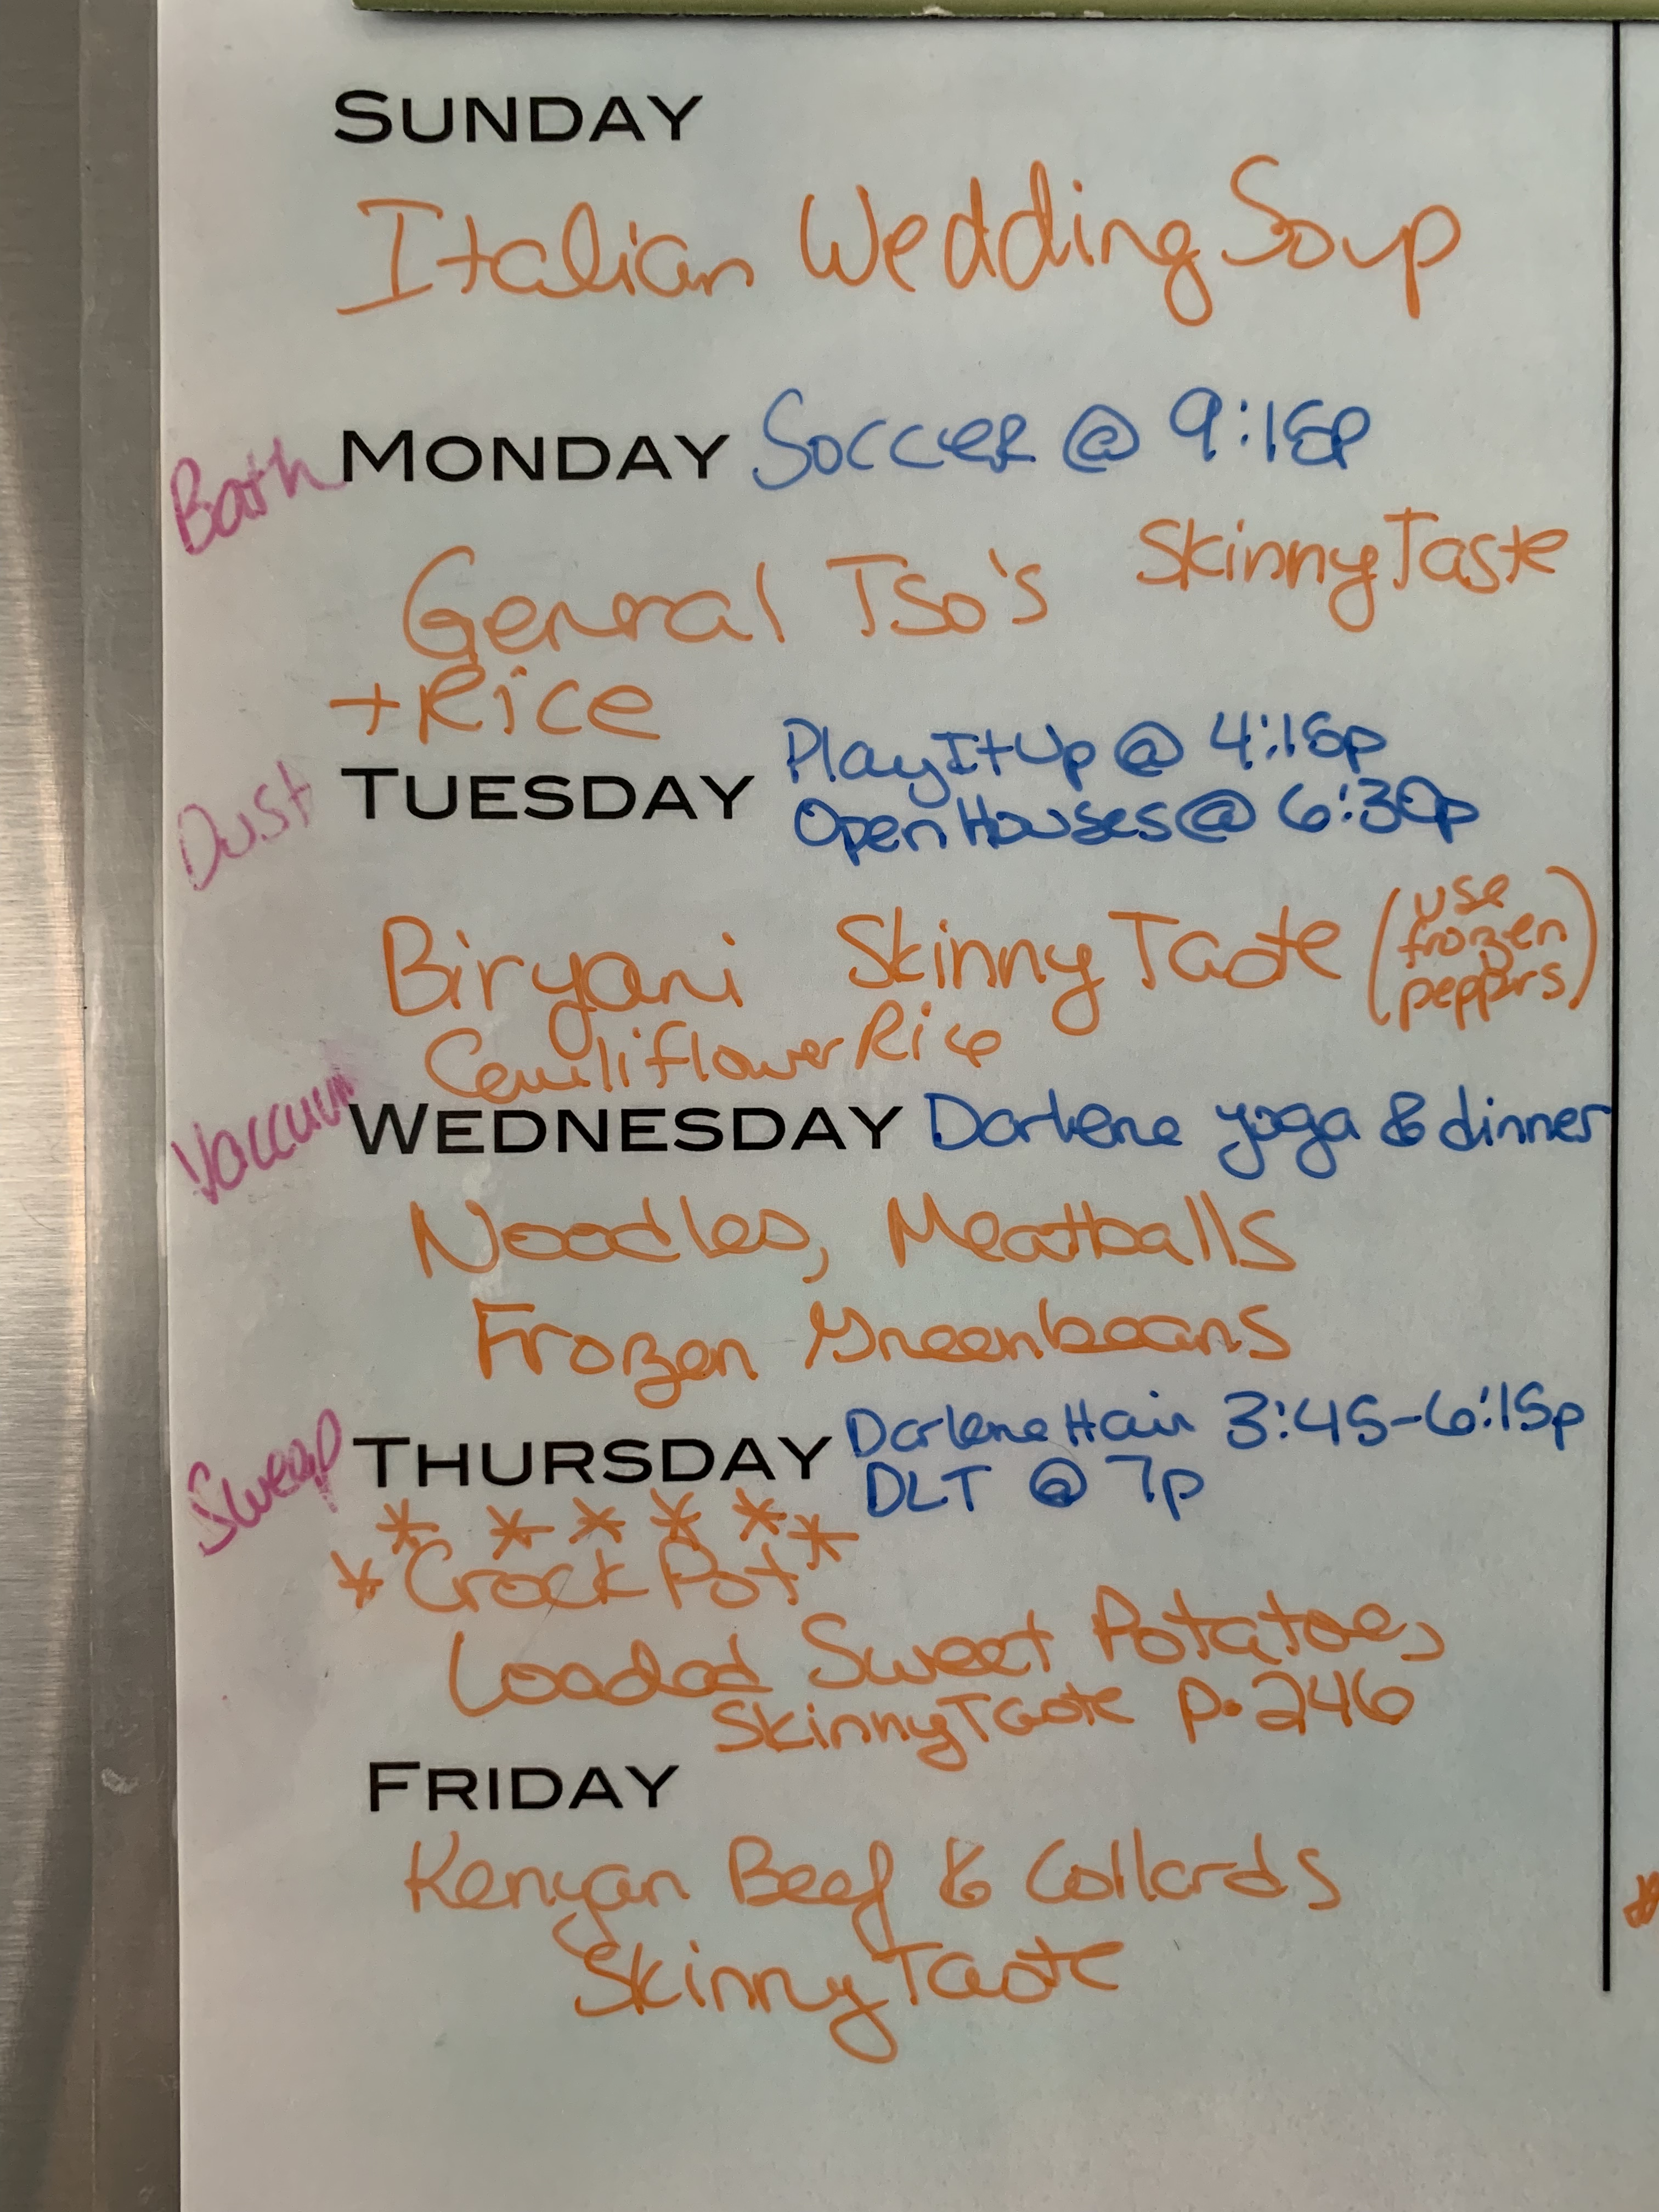 SUNDAY
Italian Wedding Soup
Bath MONDAY Soccer @ 9:15p
General Tso's SkinnyTaste
+Rice
Dust TUESDAY PlayItUp @ 4:15p
Open Houses @ 6:30p
Biryani SkinnyTaste (use frozen peppers)
Cauliflower Rice
Vaccuum WEDNESDAY Darlene yoga & dinner
Noodles, Meatballs
Frozen Greenbeans
Sweep THURSDAY Darlene Hair 3:45-6:15p
DLT @ 7p
* * * * * *
* Crock Pot *
Loaded Sweet Potatoes
SkinnyTaste p. 246
FRIDAY
Kenyan Beef & Collards
SkinnyTaste